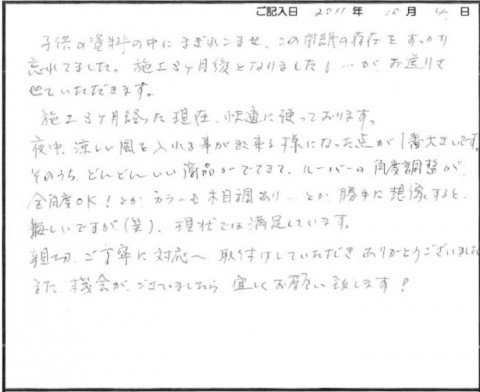 ご記入日 2011 年 10 月 4 日
子供の資料の中にまぎれこませ、この用紙の存在をすっかり
忘れてました。施工3ヶ月後となりました!…がお送りさ
せていただきます。
施工3ヶ月経った現在、快適に使っております。
夜中、涼しい風を入れる事が出来る様になった点が1番大きいです。
そのうち、どんどんいい商品がでてきて、ルーバーの角度調整が、
全角度OK!とか カラーも木目調あり…とか 勝手に想像すると、
悔しいですが(笑)、現状では満足しています。
親切、ご丁寧に対応〜取付けしていただきありがとうございました
また、機会がございましたら 宜しくお願い致します!